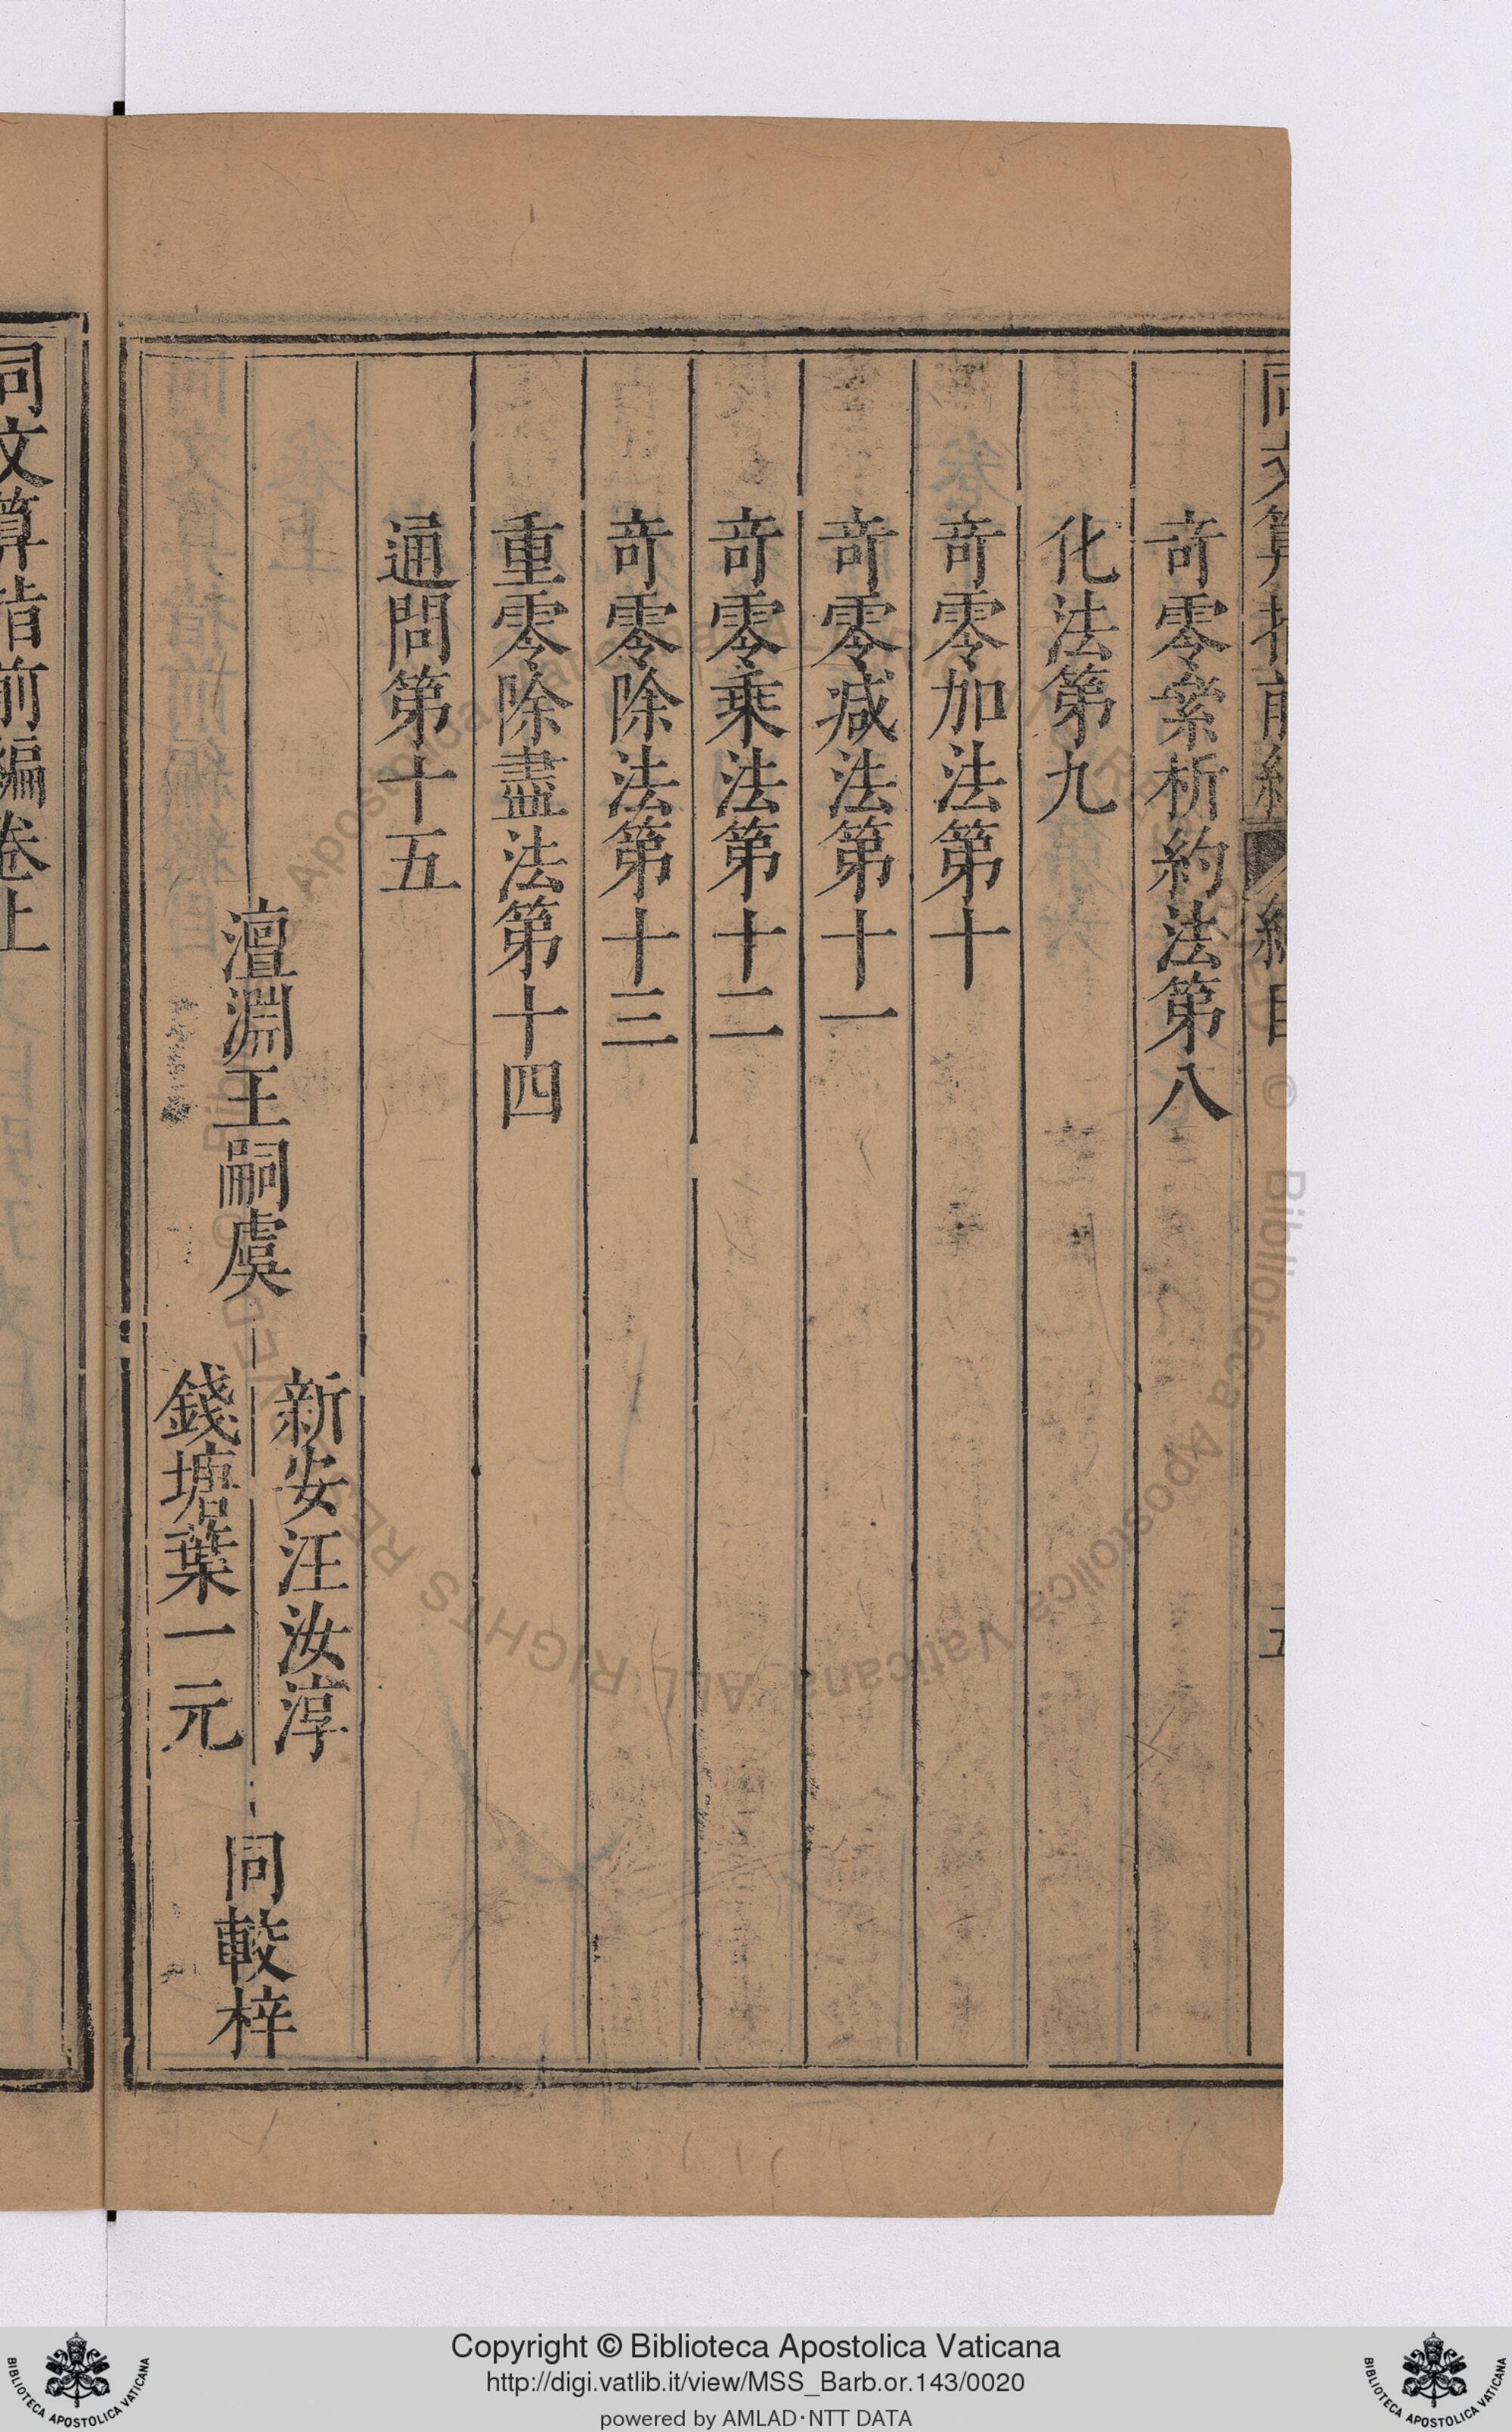 奇零絫析約法第八
化法第九
奇零加法第十
奇零減法第十一
奇零乘法第十二
奇零除法第十三
重零除盡法第十四
通問第十五
澶淵王嗣虞
新安汪汝淳
錢塘葉一元
同較梓
同文算指前編卷上
Copyright © Biblioteca Apostolica Vaticana
http://digi.vatlib.it/view/MSS_Barb.or.143/0020
powered by AMLAD·NTT DATA
BIBLIOTECA APOSTOLICA VATICANA
BIBLIOTECA APOSTOLICA VATICANA